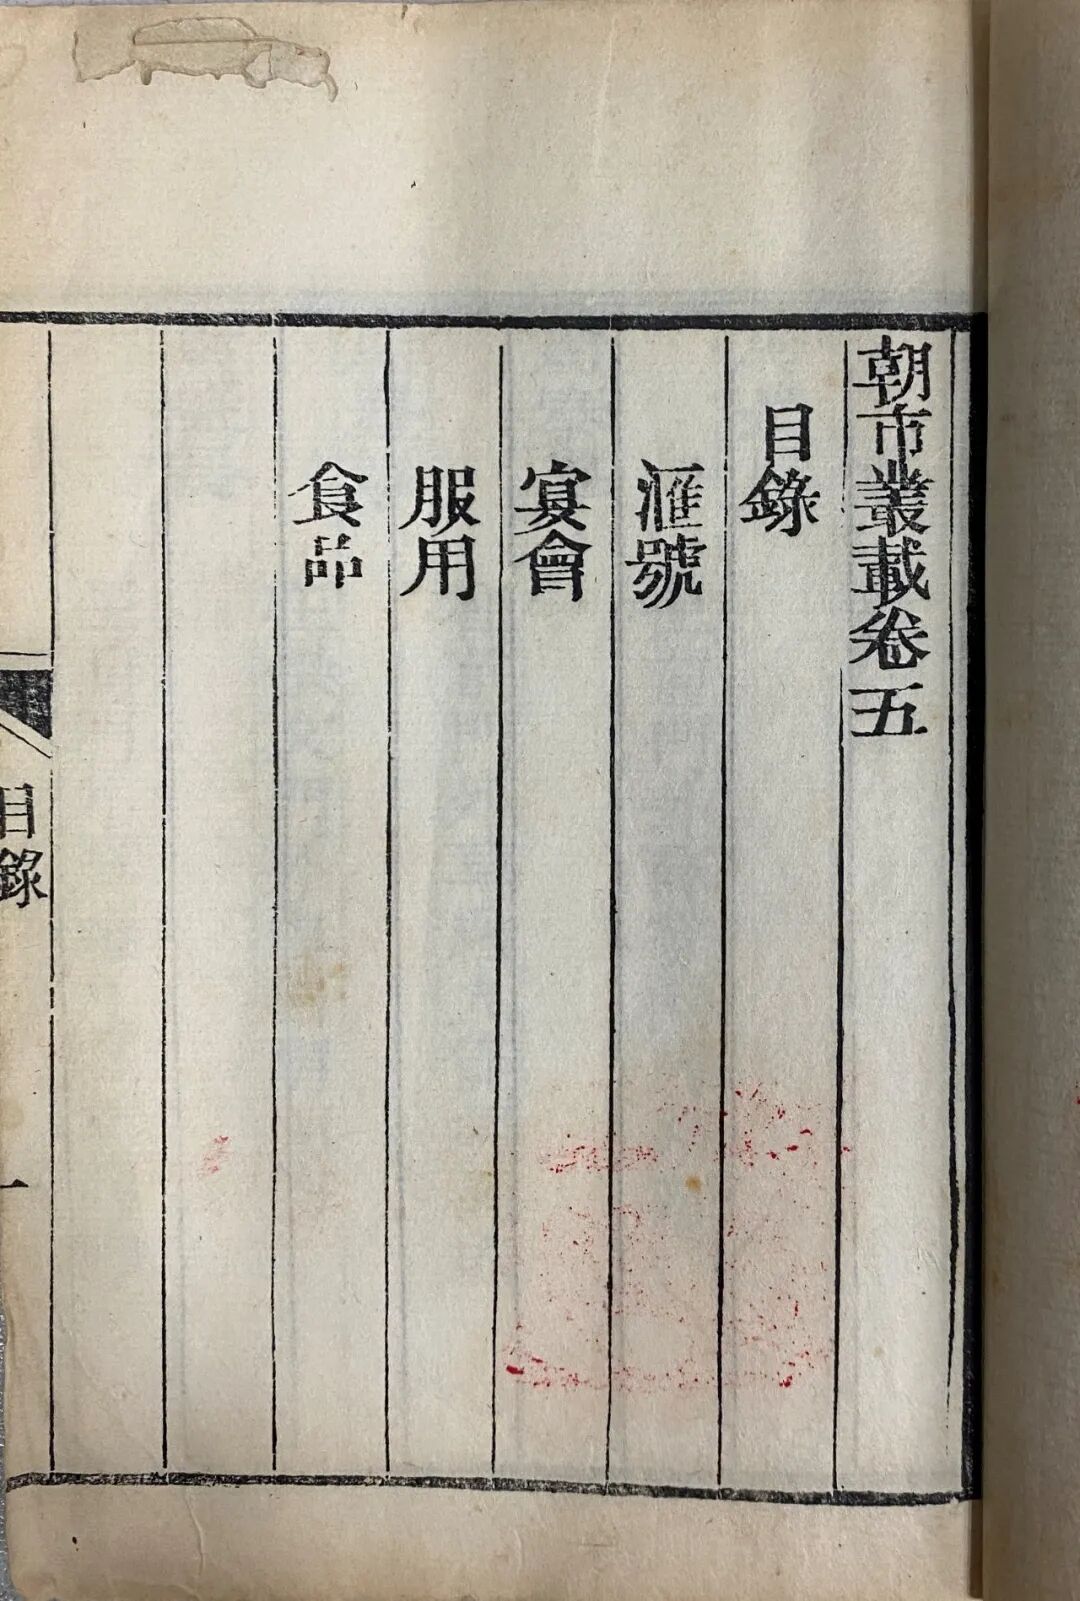 朝市叢載卷五
目錄
滙號
宴會
服用
食品
目錄
一